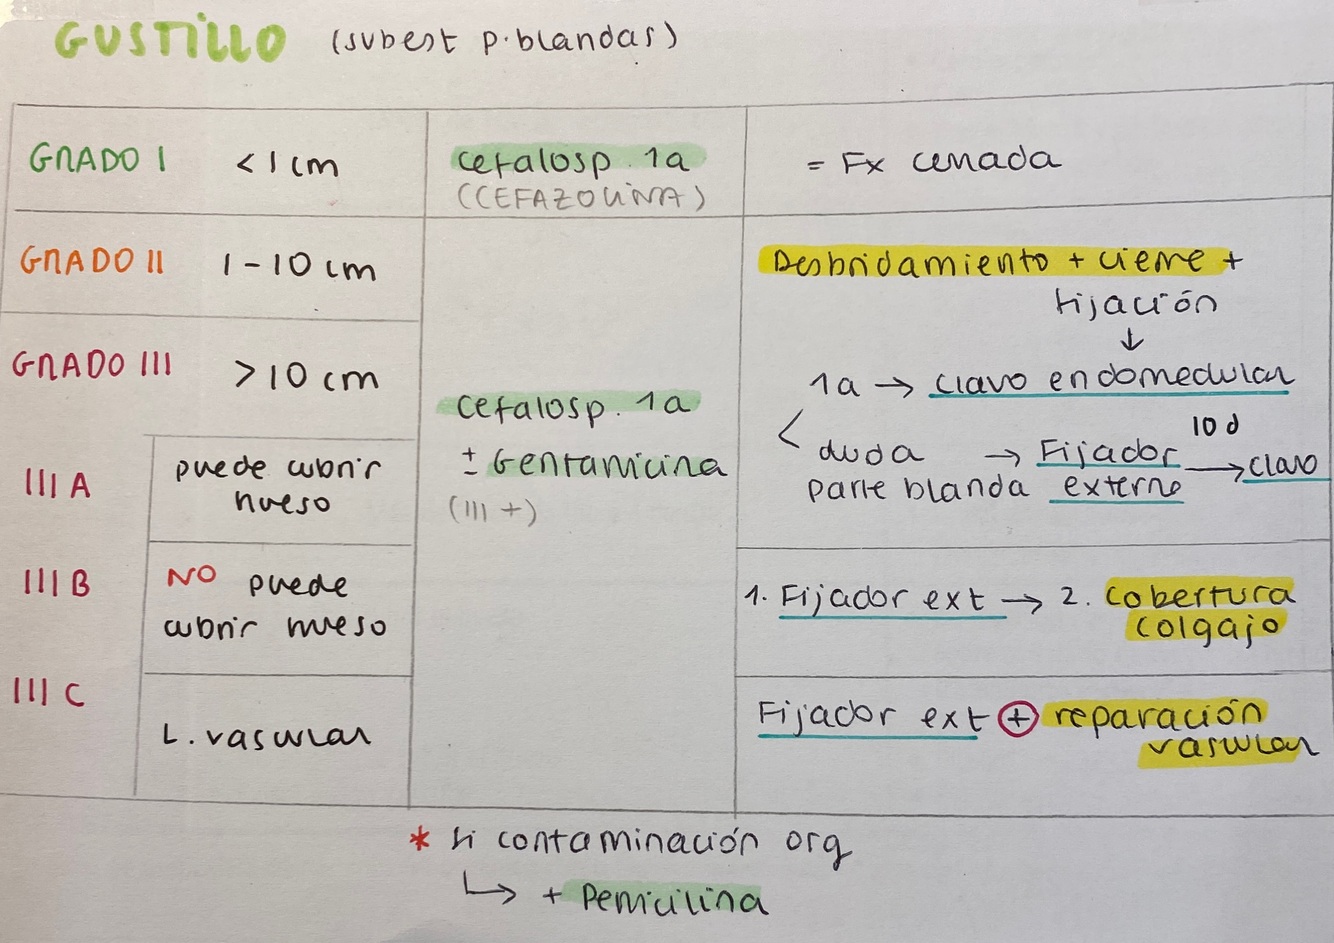 GUSTILLO (subest p.blandas)
GRADO I < 1 cm
cefalosp. 1a
(CEFAZOLINA)
= Fx cerrada
GRADO II 1-10 cm
GRADO III > 10 cm
III A puede cubrir
hueso
III B NO puede
cubrir hueso
III C L. vascular
cefalosp. 1a
± Gentamicina
(III +)
Desbridamiento + cierre +
fijación
↓
1a → clavo endomedular
< duda
parte blanda → Fijador
externo 10 d → clavo
1. Fijador ext → 2. cobertura
colgajo
Fijador ext + reparación
vascular
* si contaminación org
↳ + Penicilina